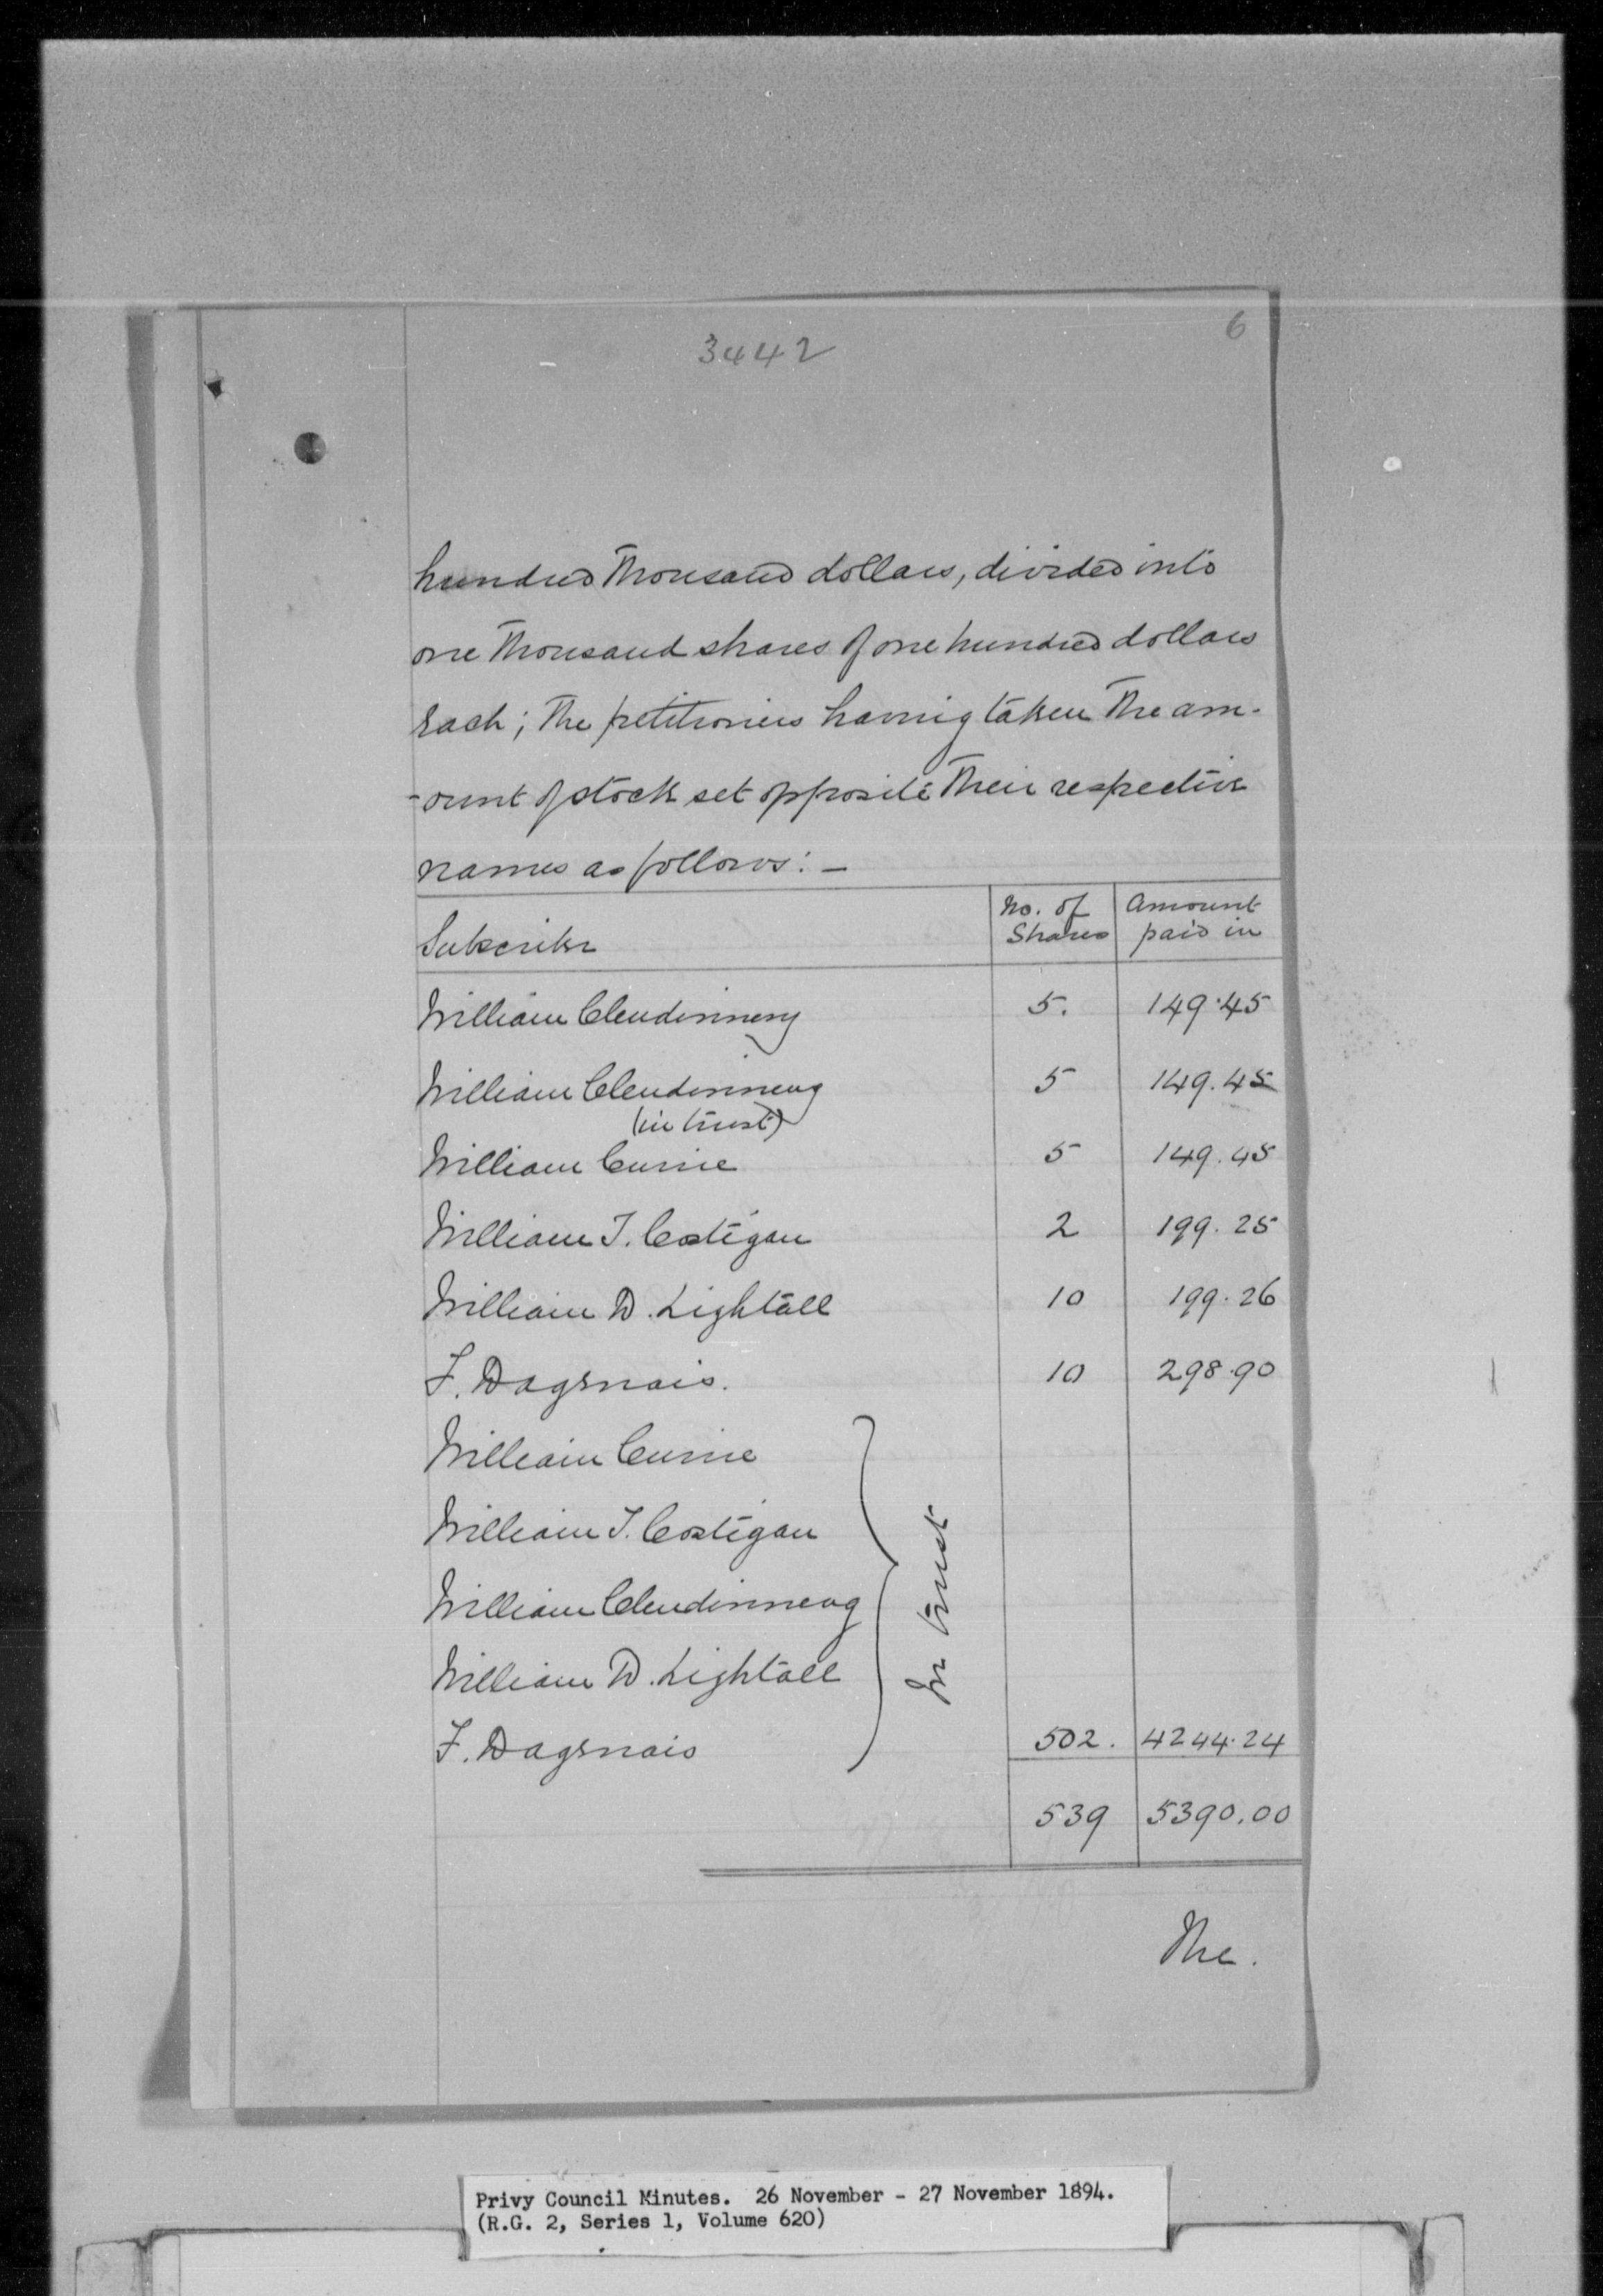 3442
6
hundred thousand dollars, divided into
one thousand shares of one hundred dollars
each; the petitioners having taken the am-
-ount of stock set opposite their respective
names as follows: —
Subscriber No. of Shares Amount paid in
William Clendinneng 5. 149.45
William Clendinneng 5 149.45
(in trust)
William Currie 5 149.45
William T. Costigan 2 199.25
William D. Lightall 10 199.26
F. Dagenais. 10 298.90
William Currie
William T. Costigan
William Clendinneng
William D. Lightall
In trust
F. Dagenais 502. 4244.24
539 5390.00
The.
Privy Council Minutes. 26 November - 27 November 1894.
(R.G. 2, Series 1, Volume 620)